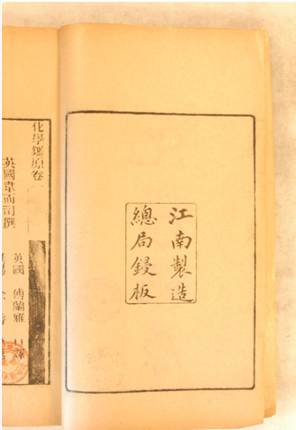 江南製造
總局鋟板
化學鑑原卷
英國韋而司撰
英國 傅蘭雅 口譯